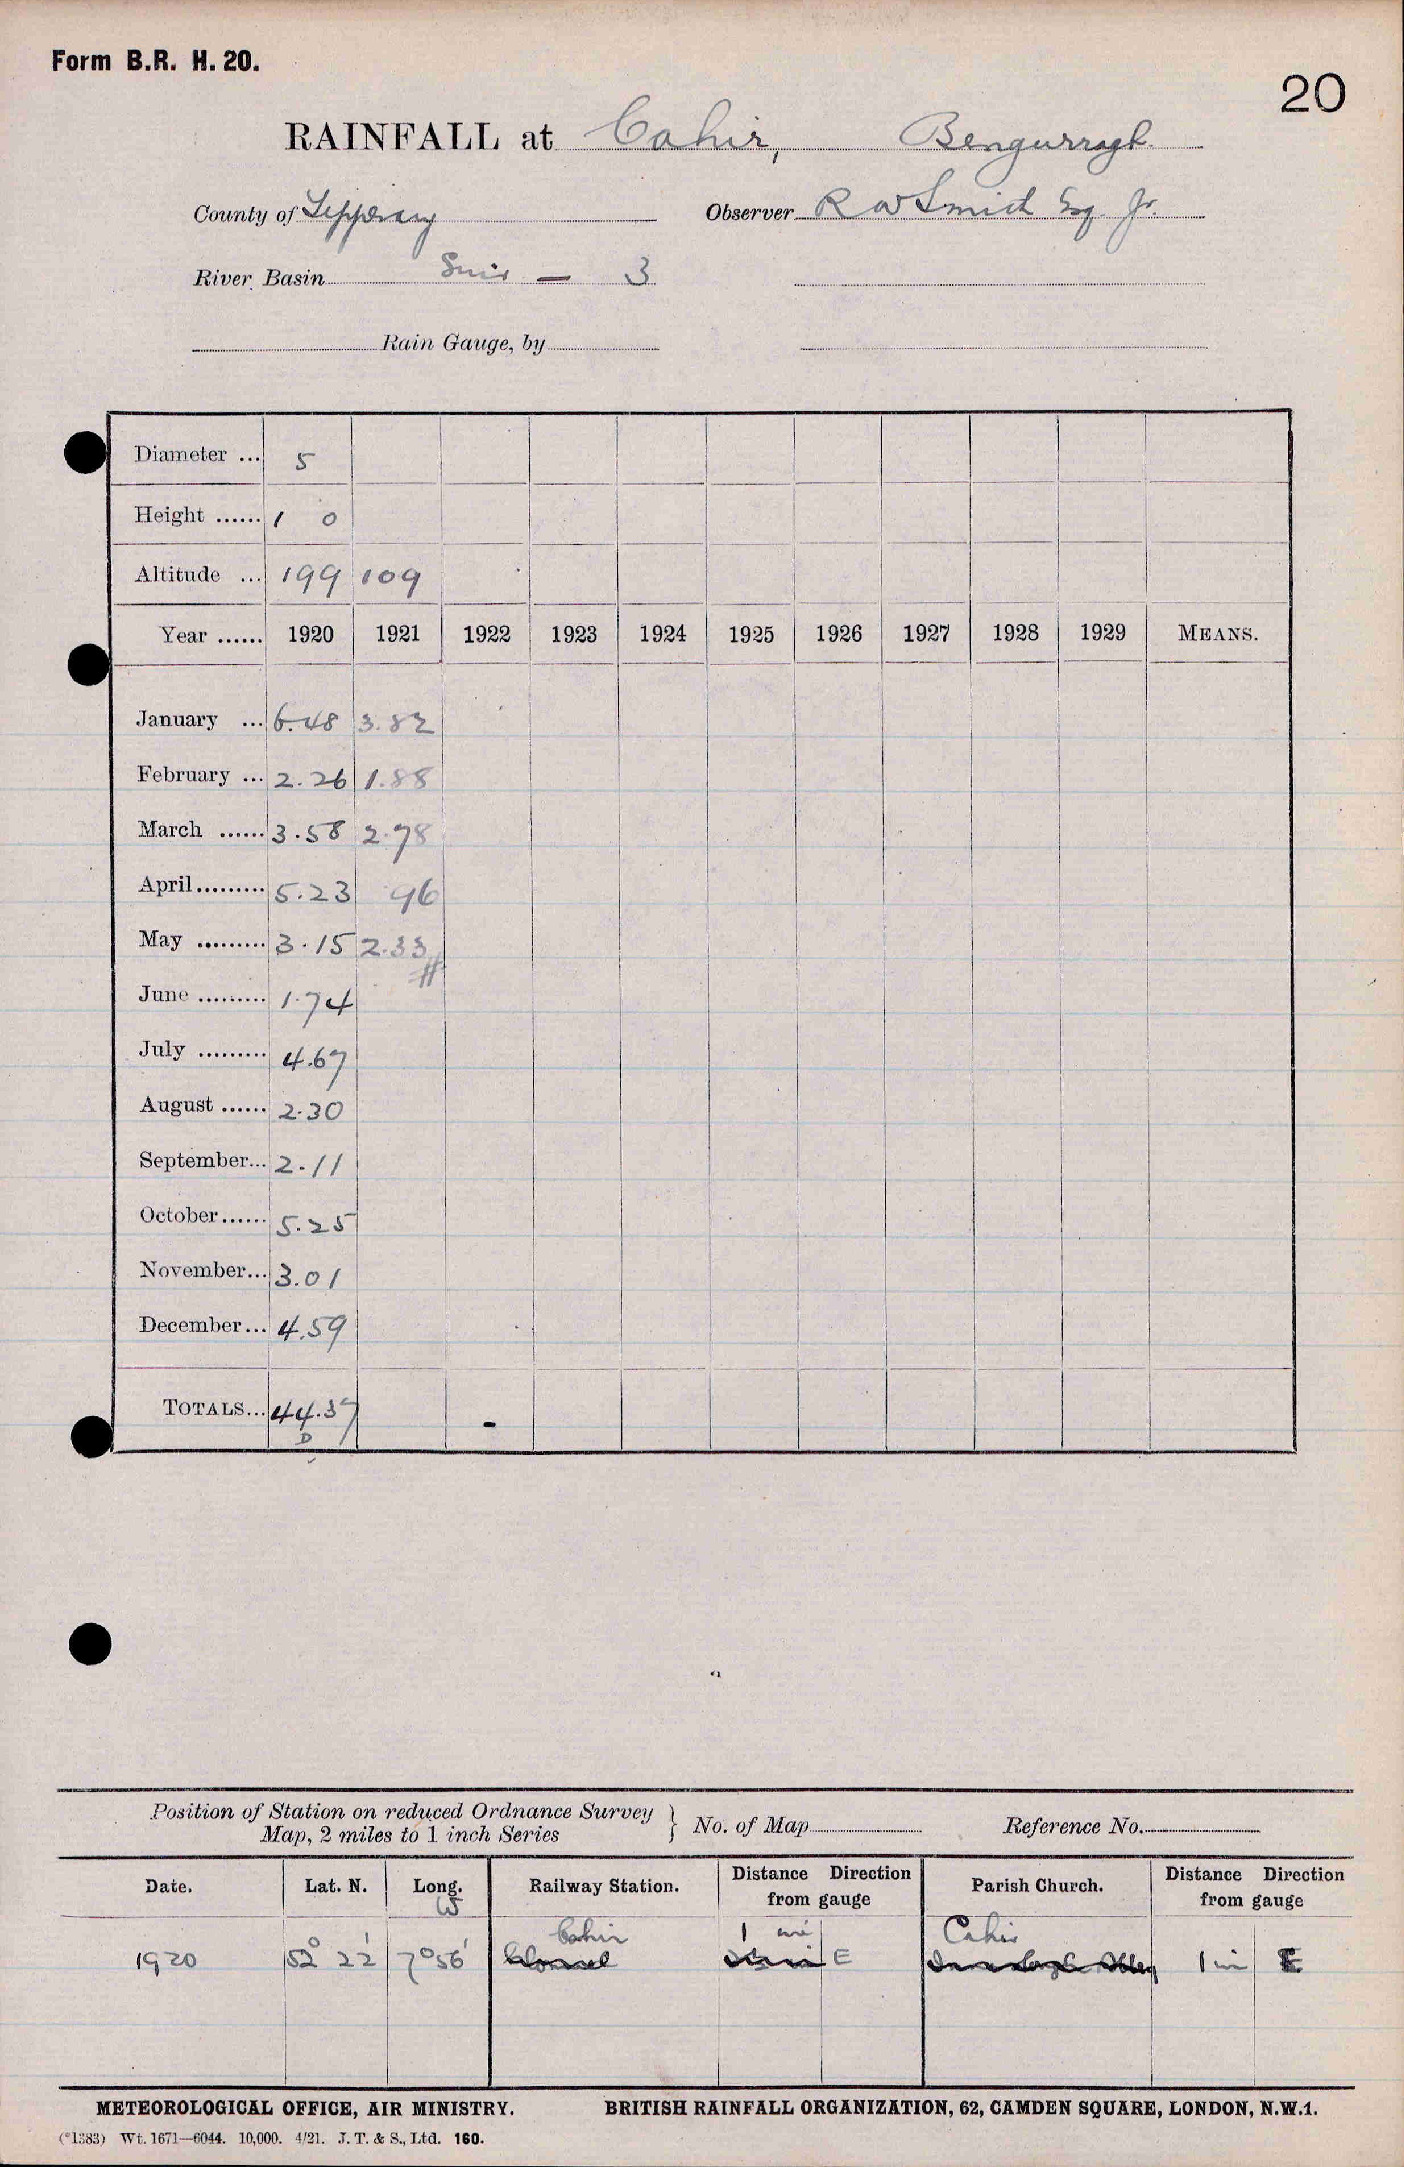 Form B.R. H. 20.
20
RAINFALL at Cahir, Bengurragh.
County of Tipperary Observer R W Smith Esq. Jr.
River Basin Suir — 3
Rain Gauge, by
Diameter ... 5
Height ...... 1 0
Altitude ... 199 109
Year ...... 1920 1921 1922 1923 1924 1925 1926 1927 1928 1929 MEANS.
January ... 6.48 3.82
February ... 2.26 1.88
March ...... 3.58 2.78
April......... 5.23 96
May ......... 3.15 2.33
#
June ......... 1.74
July ......... 4.67
August ...... 2.30
September... 2.11
October...... 5.25
November... 3.01
December... 4.59
TOTALS... 44.37 -
D
Position of Station on reduced Ordnance Survey
Map, 2 miles to 1 inch Series } No. of Map Reference No.
Date. Lat. N. Long. W Railway Station. Distance Direction from gauge Parish Church. Distance Direction from gauge
Cahir 1 mi Cahir
1920 52° 22' 7° 56' Clonmel E 1 mi E
METEOROLOGICAL OFFICE, AIR MINISTRY. BRITISH RAINFALL ORGANIZATION, 62, CAMDEN SQUARE, LONDON, N.W.1.
(*1383) Wt. 1671—6044. 10,000. 4/21. J. T. & S., Ltd. 160.